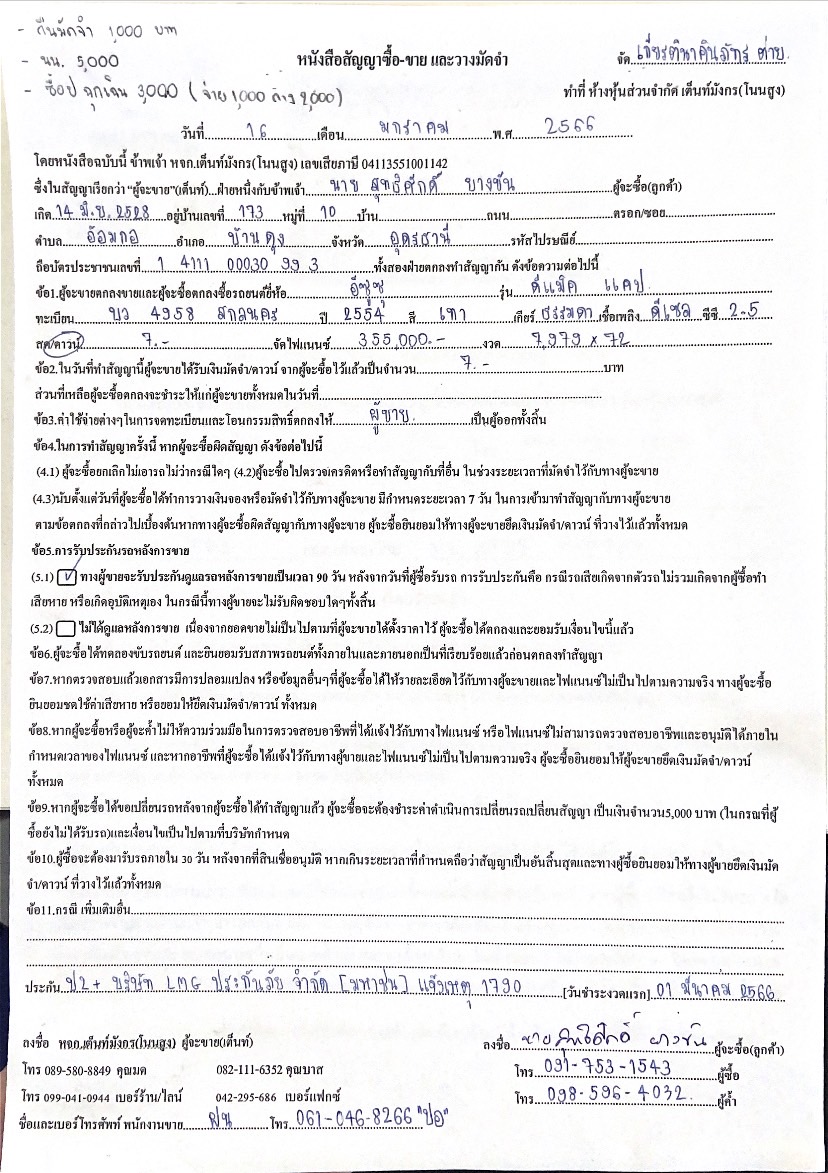 - คืนมัดจำ 1,000 บาท
- นน. 5,000
- ซื้อป ฉุกเฉิน 3,000 (จ่าย 1,000 ค้าง 2,000)
หนังสือสัญญาซื้อ-ขาย และวางมัดจำ
จัด เกียรตินาคินภัทร
ทำที่ ห้างหุ้นส่วนจำกัด เต็นท์มังกร(โนนสูง)
วันที่ 16 เดือน มกราคม พ.ศ 2566
โดยหนังสือฉบับนี้ ข้าพเจ้า หจก.เต็นท์มังกร(โนนสูง) เลขเสียภาษี 04113551001142
ซึ่งในสัญญาเรียกว่า "ผู้จะขาย"(เต็นท์)...ฝ่ายหนึ่งกับข้าพเจ้า นาย สุทธิศักดิ์ บางขัน ผู้จะซื้อ(ลูกค้า)
เกิด 14 มิ.ย. 2528 อยู่บ้านเลขที่ 173 หมู่ที่ 10 บ้าน ถนน ตรอก/ซอย
ตำบล อ้อมกอ อำเภอ บ้านดุง จังหวัด อุดรธานี รหัสไปรษณีย์
ถือบัตรประชาชนเลขที่ 1 4111 00030 99 3 ทั้งสองฝ่ายตกลงทำสัญญากัน ดังข้อความต่อไปนี้
ข้อ1.ผู้จะขายตกลงขายและผู้จะซื้อตกลงซื้อรถยนต์ยี่ห้อ อีซูซุ รุ่น ดีแม็ค แคป
ทะเบียน บว 4958 สกลนคร ปี 2554 สี เทา เกียร์ ธรรมดา เชื้อเพลิง ดีเซล ซีซี 2.5
สด/ดาวน์ 7.- จัดไฟแนนซ์ 355,000.- งวด 7,979 x 72
ข้อ2.ในวันที่ทำสัญญานี้ผู้จะขายได้รับเงินมัดจำ/ดาวน์ จากผู้จะซื้อไว้แล้วเป็นจำนวน 7.- บาท
ส่วนที่เหลือผู้จะซื้อตกลงจะชำระให้แก่ผู้จะขายทั้งหมดในวันที่
ข้อ3.ค่าใช้จ่ายต่างๆในการจดทะเบียนและโอนกรรมสิทธิ์ตกลงให้ ผู้ขาย เป็นผู้ออกทั้งสิ้น
ข้อ4.ในการทำสัญญาครั้งนี้ หากผู้จะซื้อผิดสัญญา ดังข้อต่อไปนี้
(4.1) ผู้จะซื้อยกเลิกไม่เอารถไม่ว่ากรณีใดๆ (4.2)ผู้จะซื้อไปตรวจเครดิตหรือทำสัญญากับที่อื่น ในช่วงระยะเวลาที่มัดจำไว้กับทางผู้จะขาย
(4.3)นับตั้งแต่วันที่ผู้จะซื้อได้ทำการวางเงินจองหรือมัดจำไว้กับทางผู้จะขาย มีกำหนดระยะเวลา 7 วัน ในการเข้ามาทำสัญญากับทางผู้จะขาย
ตามข้อตกลงที่กล่าวไปเบื้องต้นหากทางผู้จะซื้อผิดสัญญากับทางผู้จะขาย ผู้จะซื้อยินยอมให้ทางผู้จะขายยึดเงินมัดจำ/ดาวน์ ที่วางไว้แล้วทั้งหมด
ข้อ5.การรับประกันรถหลังการขาย
(5.1) ทางผู้ขายจะรับประกันดูแลรถหลังการขายเป็นเวลา 90 วัน หลังจากวันที่ผู้ซื้อรับรถ การรับประกันคือ กรณีรถเสียเกิดจากตัวรถไม่รวมเกิดจากผู้ซื้อทำ
เสียหาย หรือเกิดอุบัติเหตุเอง ในกรณีนี้ทางผู้ขายจะไม่รับผิดชอบใดๆทั้งสิ้น
(5.2) ไม่ได้ดูแลหลังการขาย เนื่องจากยอดขายไม่เป็นไปตามที่ผู้จะขายได้ตั้งราคาไว้ ผู้จะซื้อได้ตกลงและยอมรับเงื่อนไขนี้แล้ว
ข้อ6.ผู้จะซื้อได้ทดลองขับรถยนต์ และยินยอมรับสภาพรถยนต์ทั้งภายในและภายนอกเป็นที่เรียบร้อยแล้วก่อนตกลงทำสัญญา
ข้อ7.หากตรวจสอบแล้วเอกสารมีการปลอมแปลง หรือข้อมูลอื่นๆที่ผู้จะซื้อได้ให้รายละเอียดไว้กับทางผู้จะขายและไฟแนนซ์ไม่เป็นไปตามความจริง ทางผู้จะซื้อ
ยินยอมชดใช้ค่าเสียหาย หรือยอมให้ยึดเงินมัดจำ/ดาวน์ ทั้งหมด
ข้อ8.หากผู้จะซื้อหรือผู้จะค้ำไม่ให้ความร่วมมือในการตรวจสอบอาชีพที่ได้แจ้งไว้กับทางไฟแนนซ์ หรือไฟแนนซ์ไม่สามารถตรวจสอบอาชีพและอนุมัติได้ภายใน
กำหนดเวลาของไฟแนนซ์ และหากอาชีพที่ผู้จะซื้อได้แจ้งไว้กับทางผู้ขายและไฟแนนซ์ไม่เป็นไปตามความจริง ผู้จะซื้อยินยอมให้ผู้จะขายยึดเงินมัดจำ/ดาวน์
ทั้งหมด
ข้อ9.หากผู้จะซื้อได้ขอเปลี่ยนรถหลังจากผู้จะซื้อได้ทำสัญญาแล้ว ผู้จะซื้อจะต้องชำระค่าดำเนินการเปลี่ยนรถเปลี่ยนสัญญา เป็นเงินจำนวน5,000 บาท (ในกรณีที่ผู้
ซื้อยังไม่ได้รับรถ)และเงื่อนไขเป็นไปตามที่บริษัทกำหนด
ข้อ10.ผู้ซื้อจะต้องมารับรถภายใน 30 วัน หลังจากที่สินเชื่ออนุมัติ หากเกินระยะเวลาที่กำหนดถือว่าสัญญาเป็นอันสิ้นสุดและทางผู้ซื้อยินยอมให้ทางผู้ขายยึดเงินมัด
จำ/ดาวน์ ที่วางไว้แล้วทั้งหมด
ข้อ11.กรณี เพิ่มเติมอื่น
ประกัน ป2+ บริษัท LMG ประกันภัย จำกัด [มหาชน] แจ้งเหตุ 1790 [วันชำระงวดแรก] 01 มีนาคม 2566
ลงชื่อ หจก.เต็นท์มังกร(โนนสูง) ผู้จะขาย(เต็นท์)
ลงชื่อ นาย สุทธิศักดิ์ บางขัน ผู้จะซื้อ(ลูกค้า)
โทร 089-580-8849 คุณมด 082-111-6352 คุณบาส
โทร 091-753-1543 ผู้ซื้อ
โทร 099-041-0944 เบอร์ร้าน/ไลน์ 042-295-686 เบอร์แฟกซ์
โทร 098-596-4032 ผู้ค้ำ
ชื่อและเบอร์โทรศัพท์ พนักงานขาย ฝน โทร 061-046-8266 "ปอ"